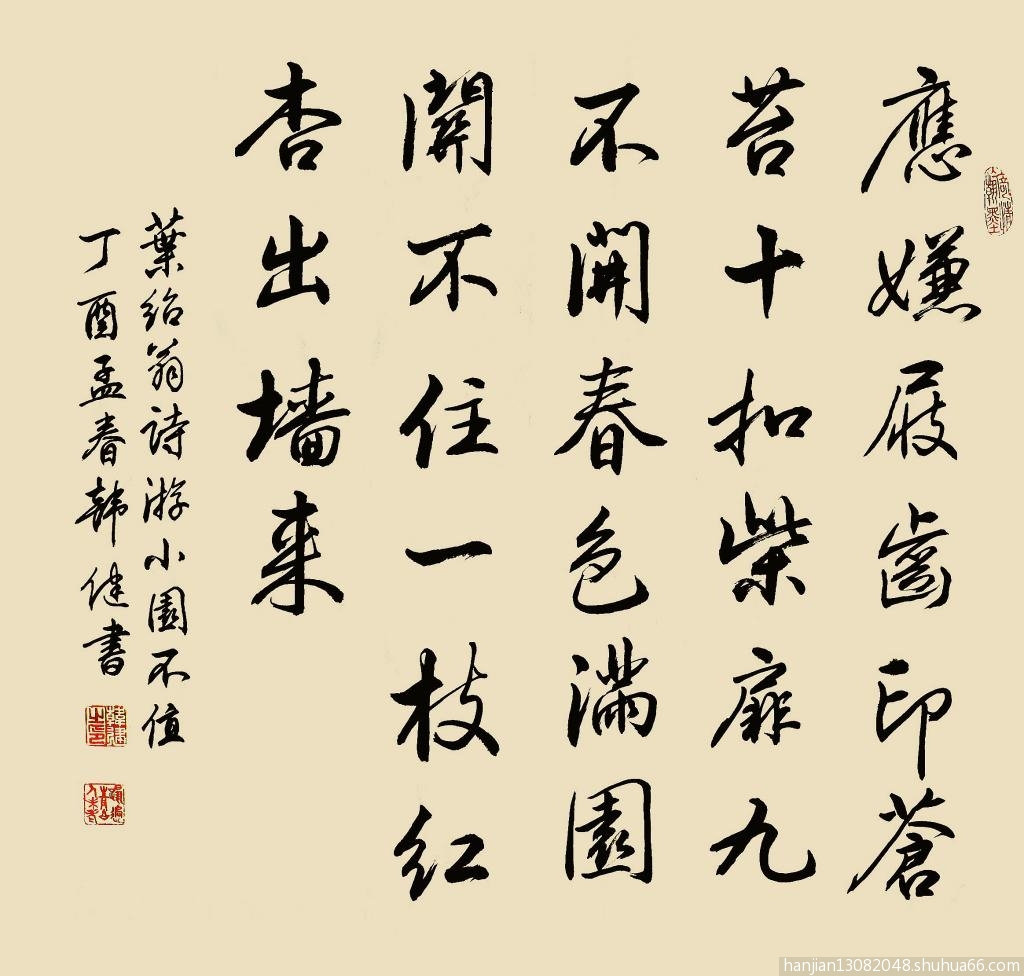 應嫌屐齒印蒼
苔十扣柴扉九
不開春色滿園
關不住一枝红
杏出墙来
葉绍翁詩游小園不值
丁酉孟春韩健書
hanjian13082048.shuhua66.com